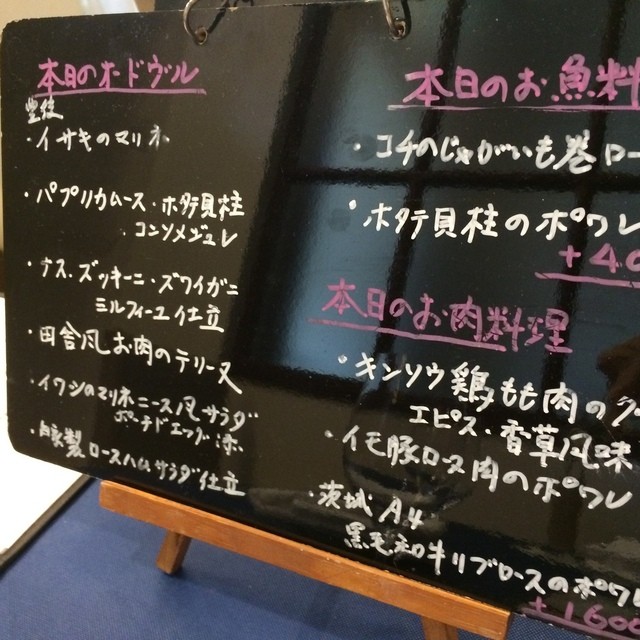 本日のオードヴル
豊後
・イサキのマリネ
・パプリカムース・ホタテ貝柱
コンソメジュレ
・ナス・ズッキーニ・ズワイガニ
ミルフィーユ仕立
・田舎風お肉のテリーヌ
・イワシのマリネニース風サラダ
ポーチドエッグ添
・自家製ロースハムサラダ仕立
本日のお魚料
・コチのじゃがいも巻ロー
・ホタテ貝柱のポワレ
+40
本日のお肉料理
・キンソウ鶏もも肉のク
エピス・香草風味
・イモ豚ロース肉のポワレ
・茨城A4
黒毛和牛リブロースのポワレ
+1600